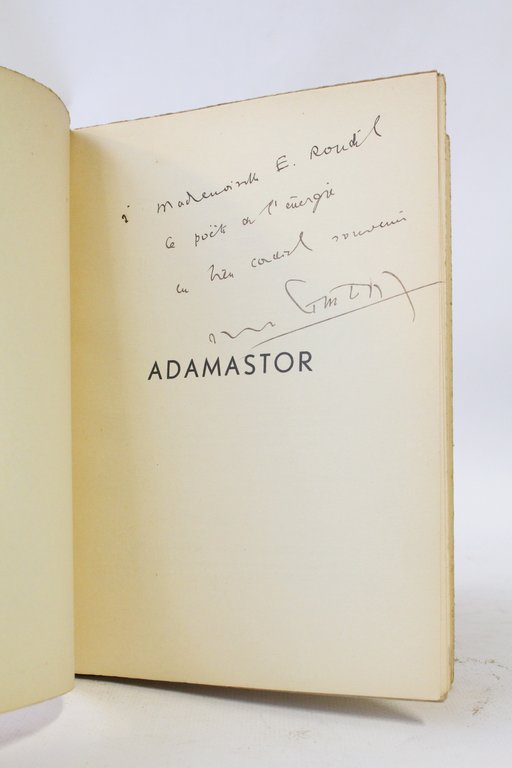 à Mademoiselle E. Roudil
ce poète de l'énergie
en bien cordial souvenir
ADAMASTOR